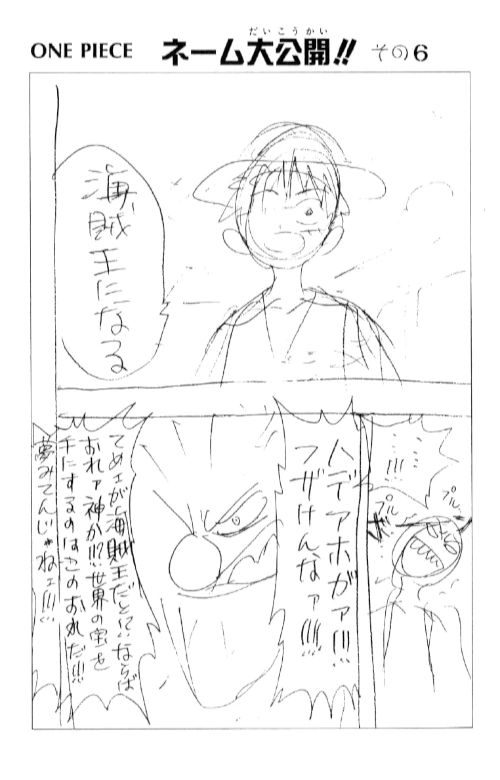 ONE PIECE ネーム大公開!! その6
だいこうかい
海賊王になる
……
……!!!
プルプル
ハデアホがァ!!!
フザけんなァ!!!!
てめェが海賊王だといいならば
おれァ神か!!?世界の宝を
手にするのはこのおれだ!!!
夢みてんじゃねェ!!!!